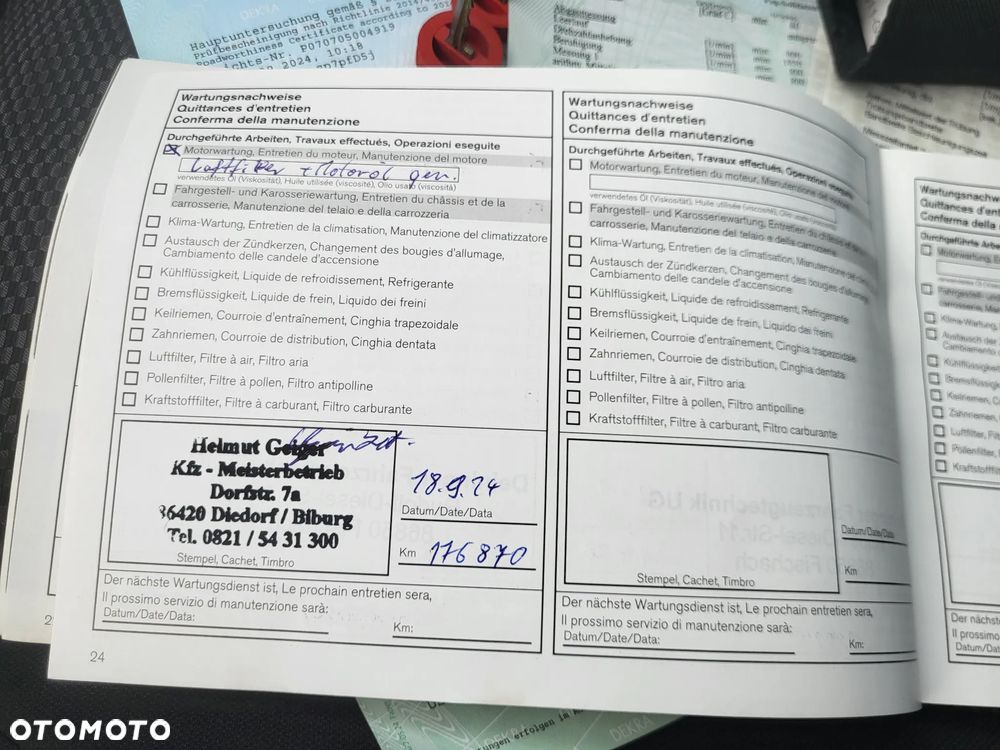 DEKRA
Hauptuntersuchung gemäß §
Prüfbescheinigung nach Richtlinie 2014/4
Roadworthiness Certificate according to 201
ichts-Nr. P070705004919
2024, 10:18
Wartungsnachweise
Quittances d'entretien
Conferma della manutenzione
Durchgeführte Arbeiten, Travaux effectués, Operazioni eseguite
Motorwartung, Entretien du moteur, Manutenzione del motore
Luftfilter + Motoröl gew.
verwendetes Öl (Viskosität), Huile utilisée (viscosité), Olio usato (viscosità)
Fahrgestell- und Karosseriewartung, Entretien du châssis et de la
carrosserie, Manutenzione del telaio e della carrozzeria
Klima-Wartung, Entretien de la climatisation, Manutenzione del climatizzatore
Austausch der Zündkerzen, Changement des bougies d'allumage,
Cambiamento delle candele d'accensione
Kühlflüssigkeit, Liquide de refroidissement, Refrigerante
Bremsflüssigkeit, Liquide de frein, Liquido dei freini
Keilriemen, Courroie d'entraînement, Cinghia trapezoidale
Zahnriemen, Courroie de distribution, Cinghia dentata
Luftfilter, Filtre à air, Filtro aria
Pollenfilter, Filtre à pollen, Filtro antipolline
Kraftstofffilter, Filtre à carburant, Filtro carburante
Helmut Geiger
Kfz - Meisterbetrieb
Dorfstr. 7a
86420 Diedorf / Biburg
Tel. 0821 / 54 31 300
Stempel, Cachet, Timbro
18.9.24
Datum/Date/Data
Km 176870
Der nächste Wartungsdienst ist, Le prochain entretien sera,
Il prossimo servizio di manutenzione sarà:
Datum/Date/Data:
Km:
24
Wartungsnachweise
Quittances d'entretien
Conferma della manutenzione
Durchgeführte Arbeiten, Travaux effectués, Operazioni eseguite
Motorwartung, Entretien du moteur, Manutenzione del motore
verwendetes Öl (Viskosität), Huile utilisée (viscosité), Olio usato (viscosità)
Fahrgestell- und Karosseriewartung, Entretien du châssis et de la
carrosserie, Manutenzione del telaio e della carrozzeria
Klima-Wartung, Entretien de la climatisation, Manutenzione del
Austausch der Zündkerzen, Changement des bougies d'allumage,
Cambiamento delle candele d'accensione
Kühlflüssigkeit, Liquide de refroidissement, Refrigerante
Bremsflüssigkeit, Liquide de frein, Liquido dei freini
Keilriemen, Courroie d'entraînement, Cinghia trapezoidale
Zahnriemen, Courroie de distribution, Cinghia dentata
Luftfilter, Filtre à air, Filtro aria
Pollenfilter, Filtre à pollen, Filtro antipolline
Kraftstofffilter, Filtre à carburant, Filtro carburante
Stempel, Cachet, Timbro
Datum/Date/Data
Km
Der nächste Wartungsdienst ist, Le prochain entretien sera,
Il prossimo servizio di manutenzione sarà:
Datum/Date/Data:
Km:
Wartungsnachweise
Quittances d'entretien
Conferma della
Motorwartung,
Klima-Wartung,
Austausch der
Kühlflüssigkeit
Bremsflüssigkeit
Keilriemen,
Zahnriemen,
Luftfilter, Fi
Pollenfilter,
Kraftstofffilter
Der nächste
Il prossimo
Datum/Dat
DEKRA
OTOMOTO